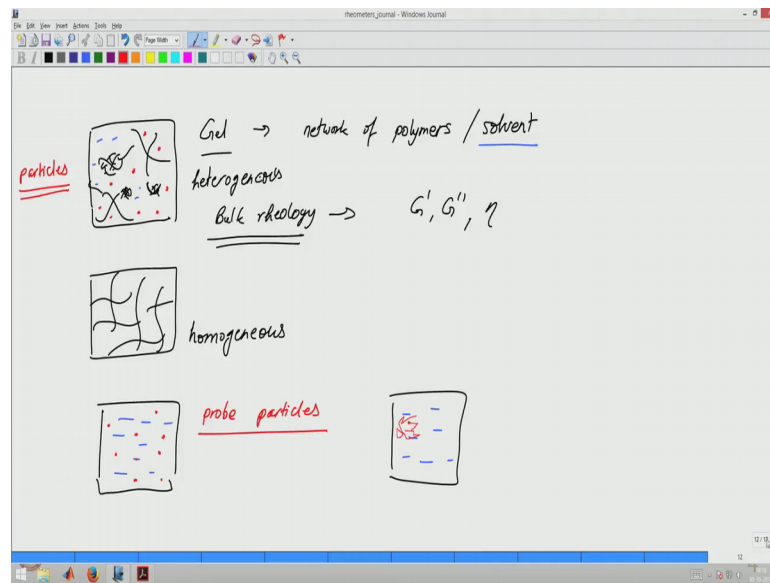 rheometers_journal - Windows Journal
File Edit View Insert Actions Tools Help
Page Width
B I
Gel → network of polymers / solvent
particles
heterogeneous
Bulk rheology → G', G'', η
homogeneous
probe particles
12 / 13
12